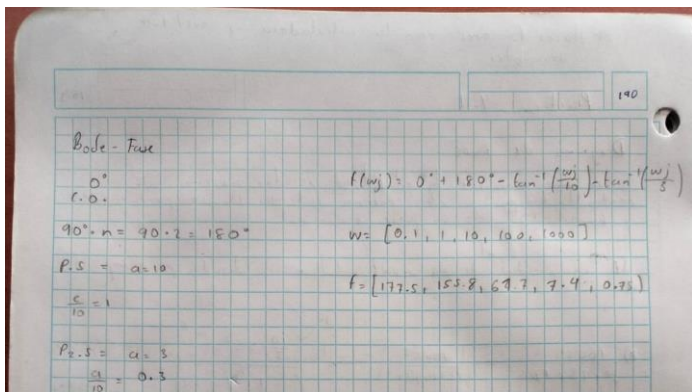 190
Bode - Fase
0°
C.O.
90°·n = 90·2 = 180°
P.S = a=10
c/10 = 1
P2.S = a=3
a/10 = 0.3
f(wj) = 0° + 180° - tan⁻¹(wj/10) - tan⁻¹(wj/3)
w= [0.1, 1, 10, 100, 1000]
f= [177.5, 155.8, 61.7, 7.4, 0.75]